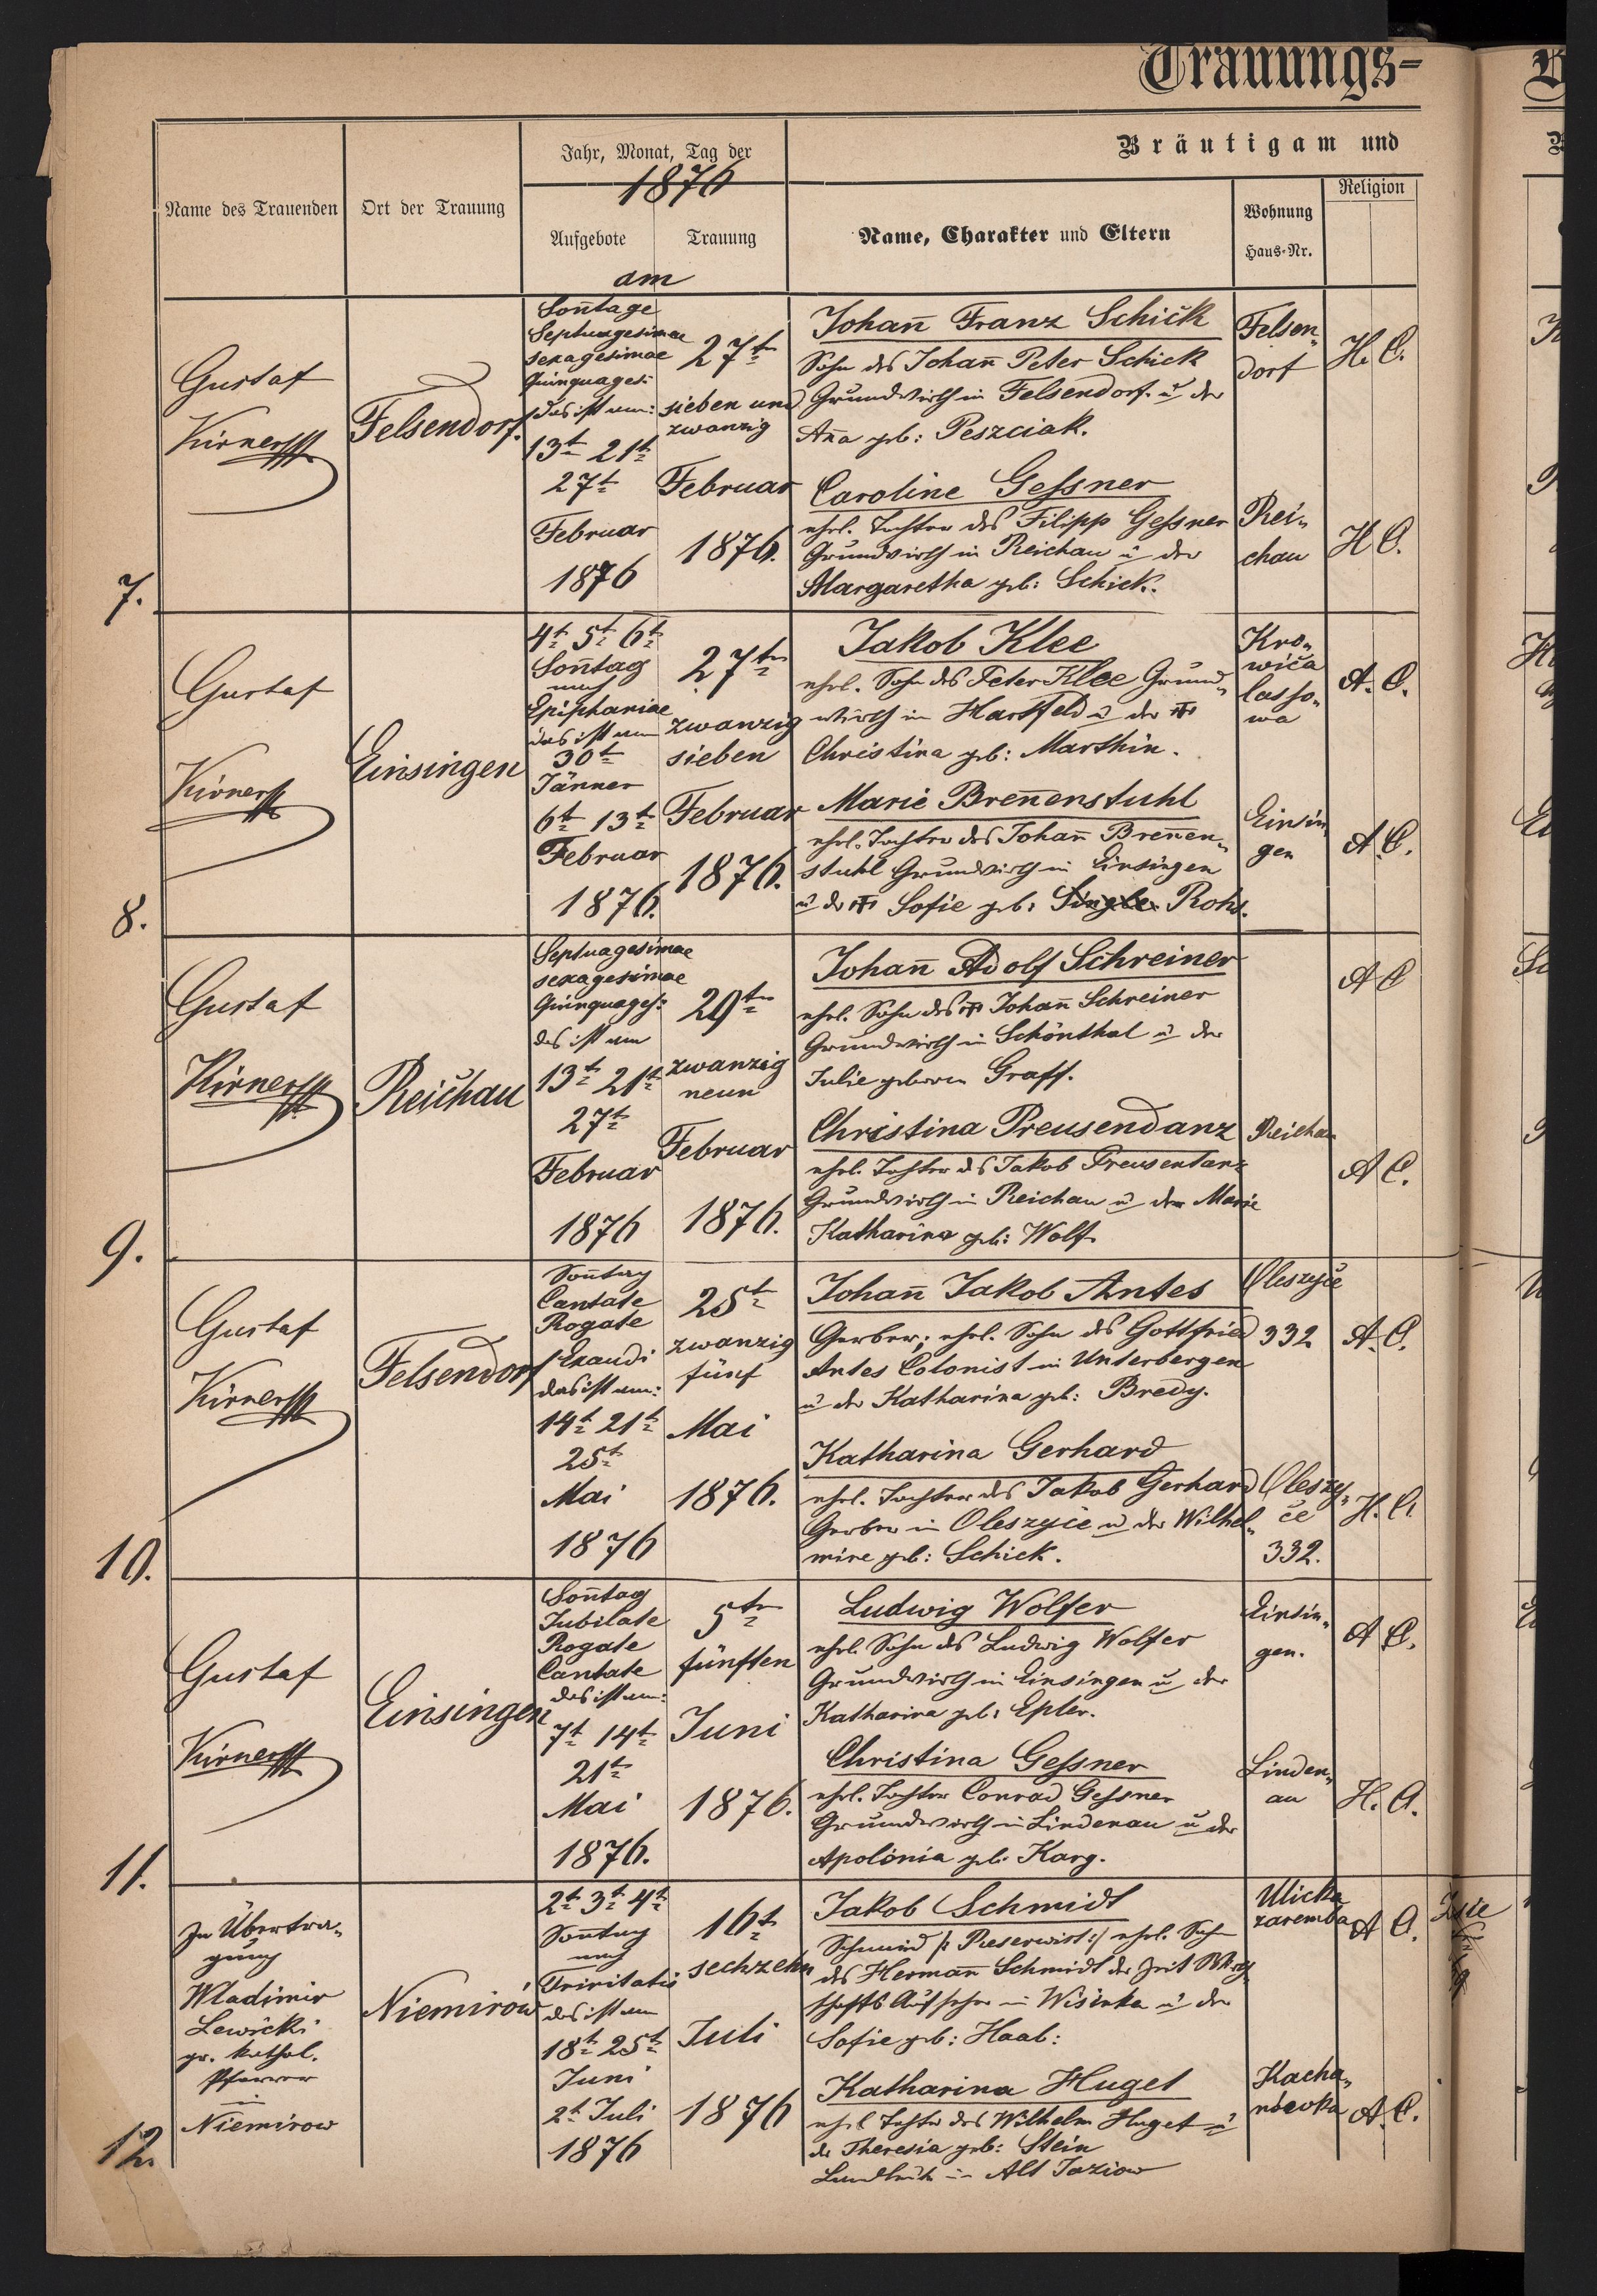 Trauungs-
Bräutigam und
Jahr, Monat, Tag der
1876
Name des Trauenden
Ort der Trauung
Aufgebote
Trauung
am
Name, Charakter und Eltern
Wohnung
Haus-Nr.
Religion
7.
Gustaf
Kirner
Felsendorf.
Soñtage
Septuagesimae
sexagesimae
Quinquages:
das ist am:
13t 21t
27t
Februar
1876
27tn
sieben und
zwanzig
Februar
1876.
Johañ Franz Schick
Sohn des Johañ Peter Schick
Grundwirth in Felsendorf. u der
Aña geb: Peszciak.
Felsen„
dorf
H. C.
Caroline Gessner
ehel. Tochter des Filipp Gessner
Grundwirth in Reichau u der
Margaretha geb: Schick.
Rei„
chau
H C.
8.
Gustaf
Kirner
Einsingen
4t 5t 6t
Soñtag
nach
Epiphaniae
das ist am
30t
Jänner
6t 13t
Februar
1876.
27tn
zwanzig
sieben
Februar
1876.
Jakob Klee
ehel. Sohn des Peter Klee Grund„
wirth in Hartfeld u der
Christina geb: Marthin.
Kro„
wica
lasso„
wa
A. C.
Marie Breñenstuhl
ehel. Tochter des Johañ Breñen„
stuhl Grundwirth in Einsingen
u der Sofie geb: Rohs.
Einsin„
gen
A. C.
9.
Gustaf
Kirner
Reichau
Septuagesimae
sexagesimae
Quinquages:
das ist am
13t 21t
27t
Februar
1876
29tn
zwanzig
neun
Februar
1876.
Johañ Adolf Schreiner
ehel. Sohn des Johañ Schreiner
Grundwirth in Schönthal u der
Julie geboren Graff.
A C
Christina Preusendanz
ehel. Tochter des Jakob Preusentanz
Grundwirth in Reichau u der Marie
Katharina geb: Wolf
Reichau
A C.
10.
Gustaf
Kirner
Felsendorf
Soñtag
Cantate
Rogate
Exaudi
das ist am:
14t 21t
25t
Mai
1876
25t
zwanzig
fünf
Mai
1876.
Johañ Jakob Antes
Gerber; ehel. Sohn des Gottfried
Antes Colonist in Unterbergen
u der Katharina geb: Bredy.
Oleszyce
332
A. C.
Katharina Gerhard
ehel. Tochter des Jakob Gerhard
Gerber in Oleszyce u der Wilhel„
mine geb: Schick.
Oleszy„
ce
332.
H. C.
11.
Gustaf
Kirner
Einsingen
Soñtag
Jubilate
Rogate
Cantate
das ist am:
7t 14t
21t
Mai
1876.
5tn
fünften
Juni
1876.
Ludwig Wolfer
ehel. Sohn des Ludwig Wolfer
Grundwirth in Einsingen u der
Katharina geb: Epler.
Einsin„
gen.
A C.
Christina Gessner
ehel. Tochter Conrad Gessner
Grundwirth in Lindenau u der
Apolonia geb. Karg.
Linden„
au
H. C.
12.
In Übertra„
gung
Wladimir
Lewicki
gr. kathol.
Pfarrer
in
Niemirow
Niemirów
2t 3t 4t
Soñtag
nach
Trinitatis
das ist am
18t 25t
Juni
2t Juli
1876
16t
sechzehn
Juli
1876
Jakob Schmidt
Schmied /: Reserwist :/ ehel. Sohn
des Hermañ Schmidt der Zeit
Aufseher in Wisinka u der
Sofie geb: Haab:
Ulicka
zaremba
A C.
Katharina Huget
ehel Tochter des Wilhelm Huget u
der Theresia geb: Stein
Landleute in Alt Jaziow
Kacha„
nówka
A. C.